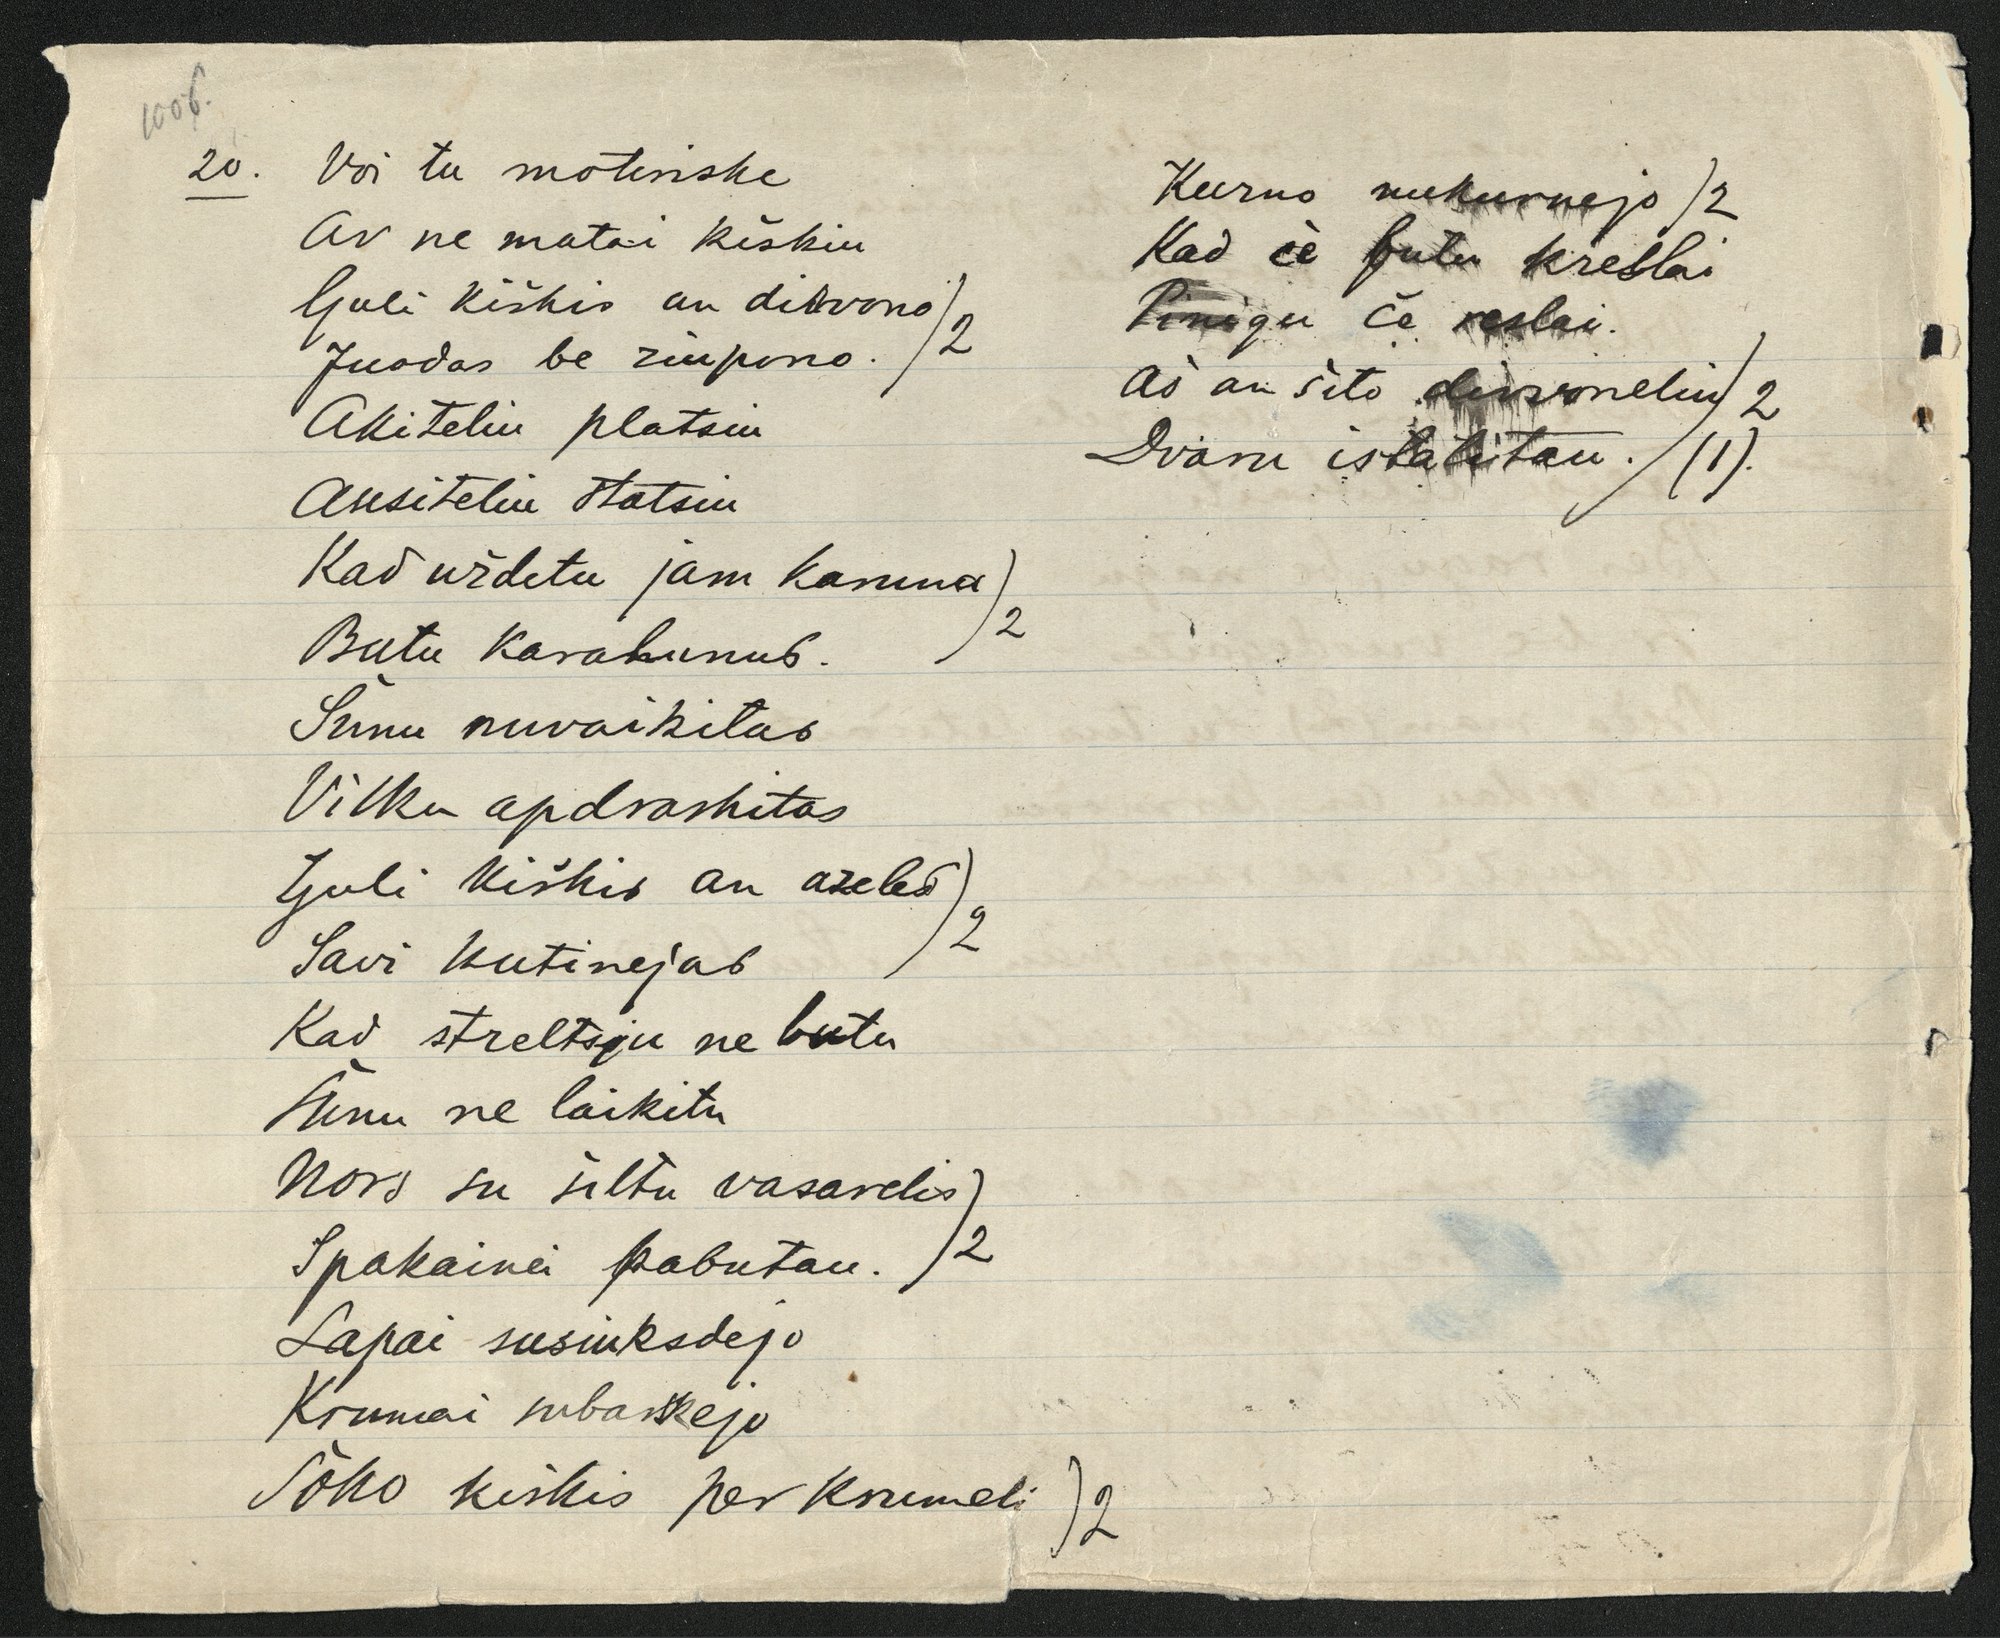 1006.
20. Voi tu motiriske
Ar ne matai kiškiu
Guli kiškis an dirvono )2
Juodas be ziupono.
Akiteliu platsiu
Ausiteliu statsiu
Kad uždetu jam kamuna )2
Butu karabunus.
Šunu nuvaikitas
Vilku apdraskitas
Guli kiškis an azelės )2
Savi kutinejas
Kad streltsju ne butu
Šunu ne laikitu
Nors su šiltu vasarelis )2
Spakainei pabutau.
Lapai susiuksdejo
Krumai subarskejo
Šoko kiškis per krumeli )2
Kurno nukurnejo )2
Kad čė butu kreslai
Pinigu čė reslai.
Aš an šito dirvoneliu )2
Dvaru istatitau. (1).